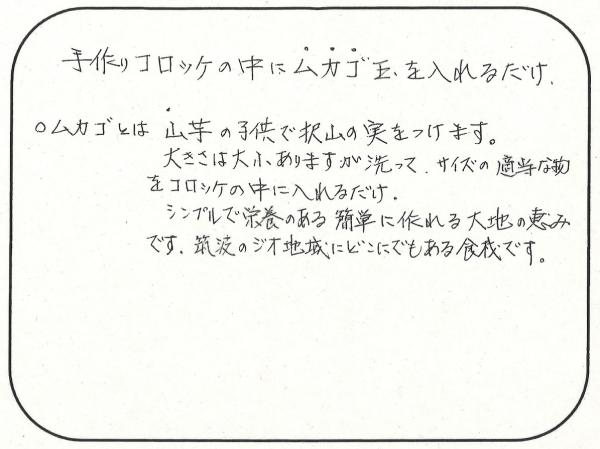 手作りコロッケの中にムカゴ玉を入れるだけ.
○ムカゴとは 山芋の子供で択山の実をつけます。
大きさは大小ありますが洗って、サイズの適当な物
をコロッケの中に入れるだけ.
シンプルで栄養のある簡単に作れる大地の恵み
です、筑波のジオ地域にどこにでもある食材です。